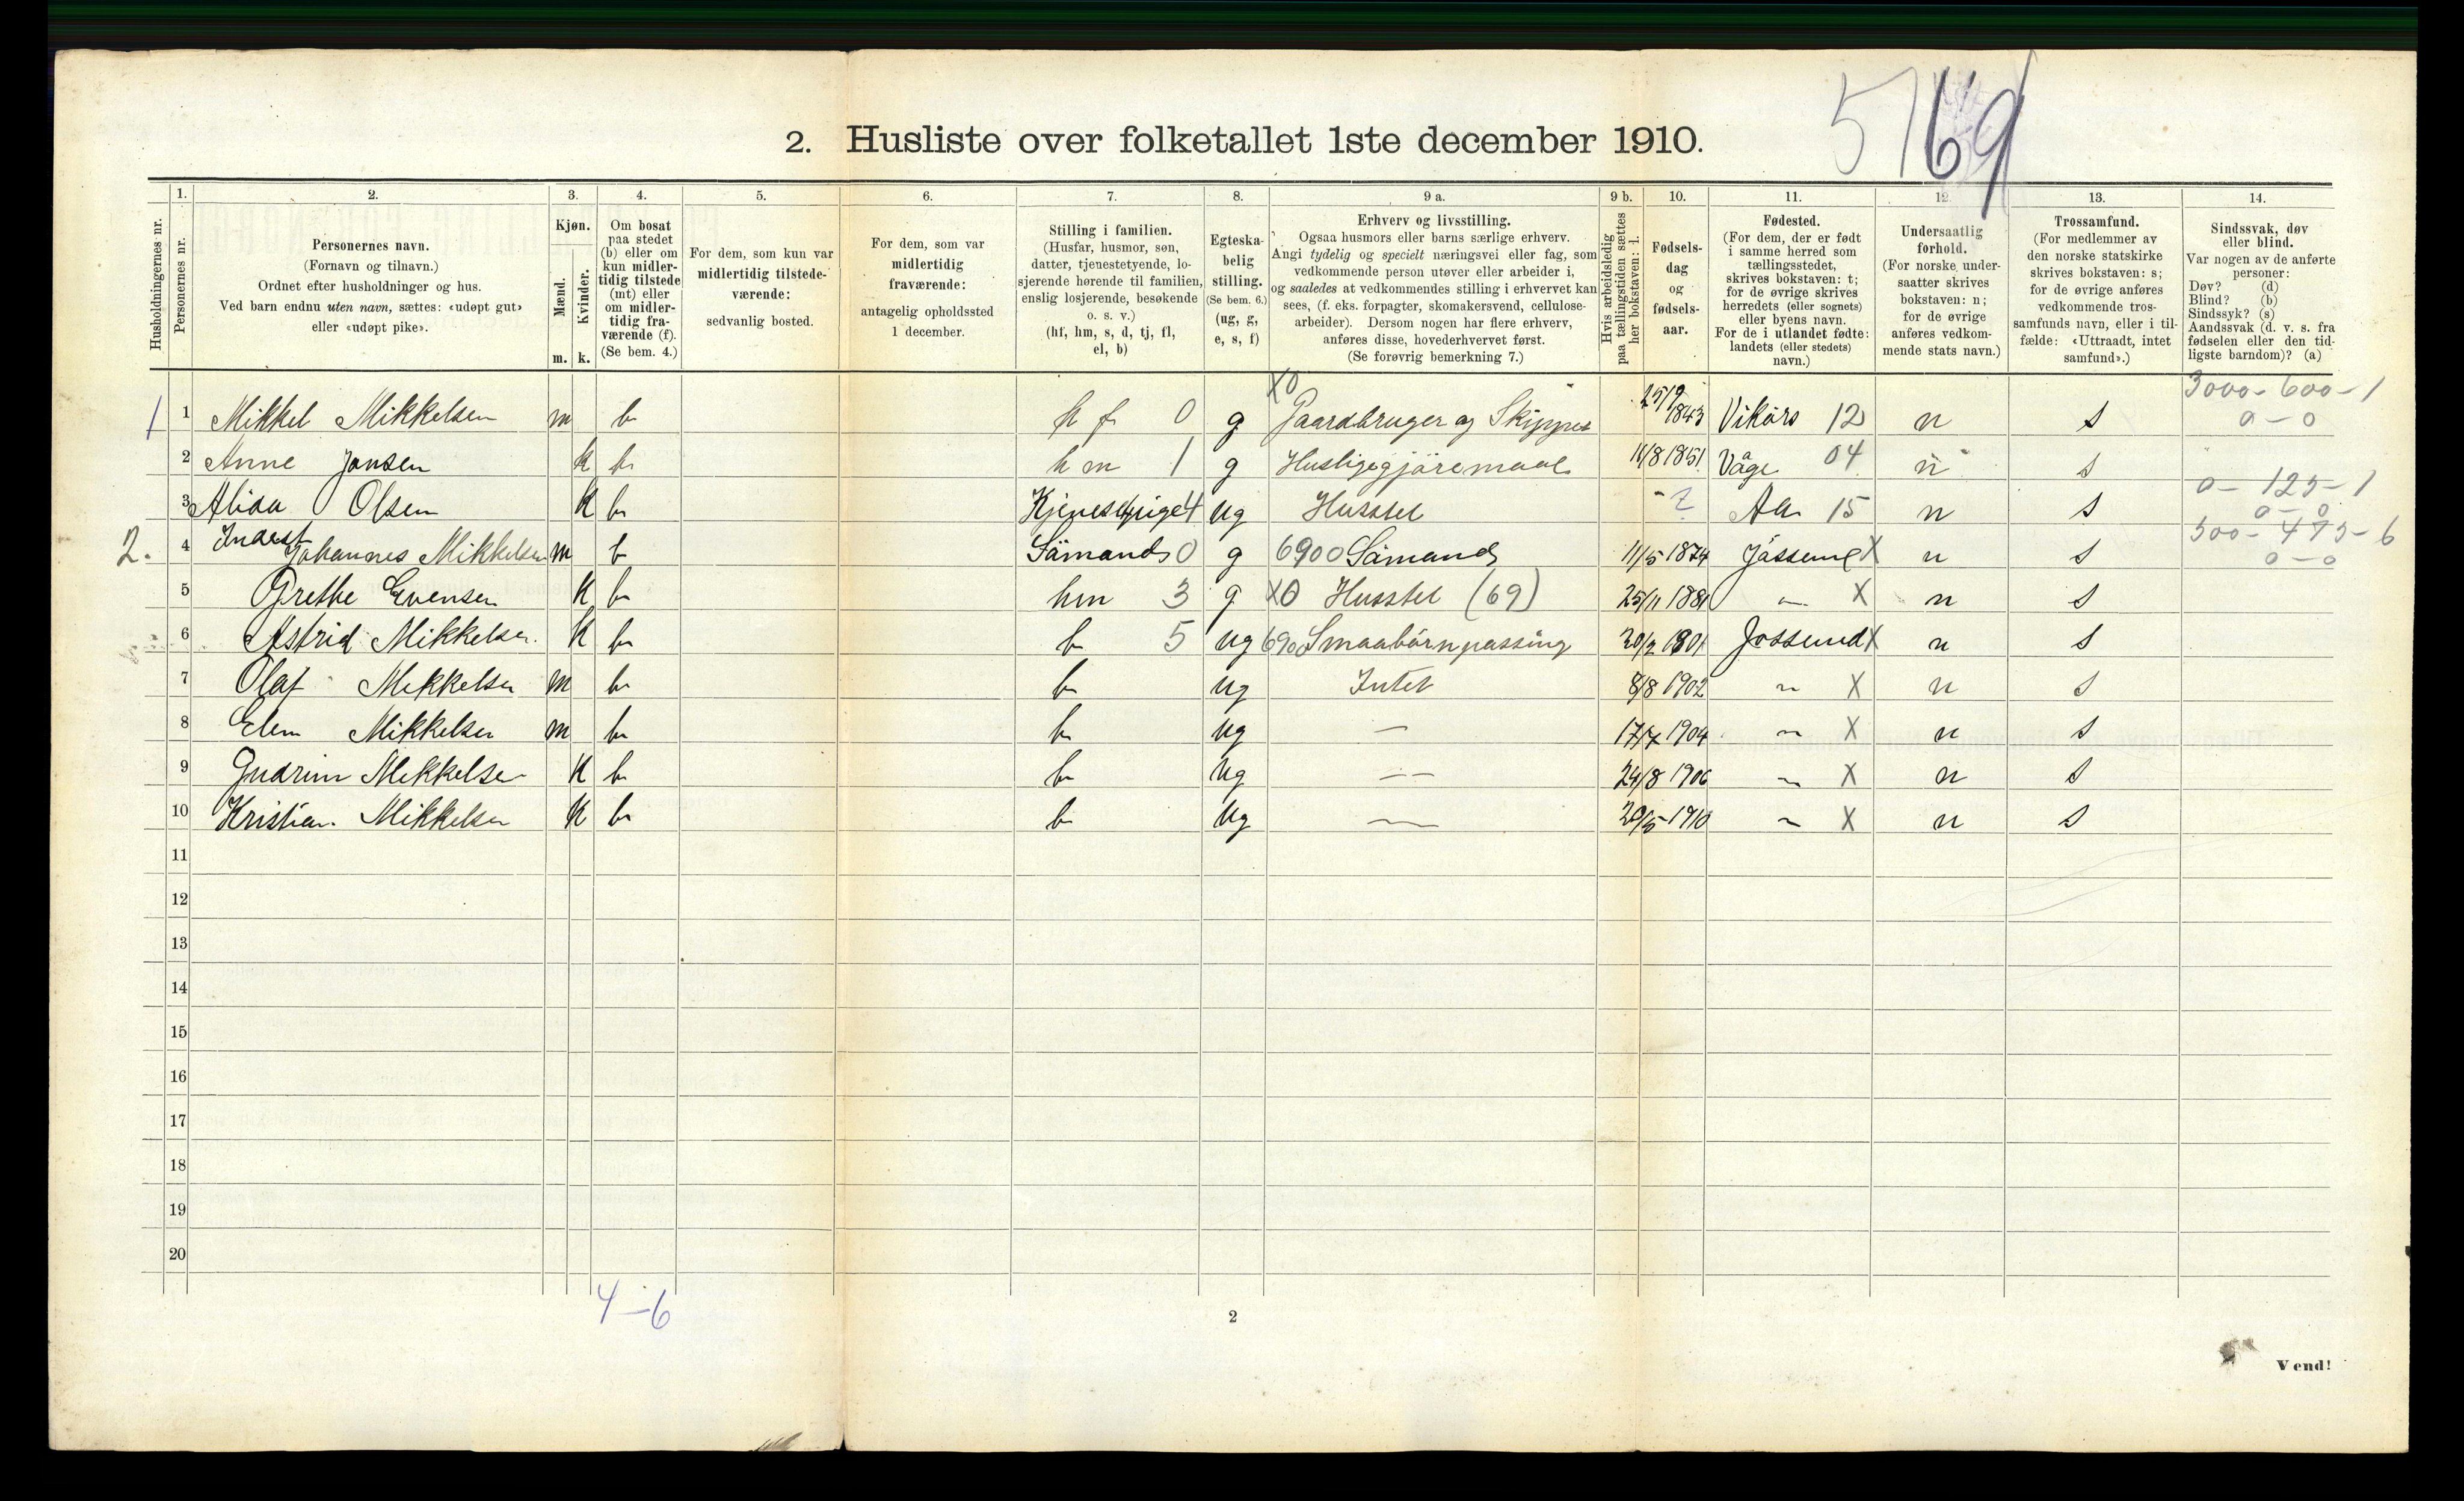 5 69
2. Husliste over folketallet 1ste december 1910.
1. 2. 3. 4. 5. 6. 7. 8. 9 a. 9 b. 10. 11. 12. 13. 14.
Husholdningernes nr.
Personernes nr.
Personernes navn.
(Fornavn og tilnavn.)
Ordnet efter husholdninger og hus.
Ved barn endnu uten navn, sættes: «udøpt gut»
eller «udøpt pike».
Kjøn.
Mænd.
Kvinder.
m. k.
Om bosat
paa stedet
(b) eller om
kun midler-
tidig tilstede
(mt) eller
om midler-
tidig fra-
værende (f).
(Se bem. 4.)
For dem, som kun var
midlertidig tilstede-
værende:
sedvanlig bosted.
For dem, som var
midlertidig
fraværende:
antagelig opholdssted
1 december.
Stilling i familien.
(Husfar, husmor, søn,
datter, tjenestetyende, lo-
sjerende hørende til familien,
enslig losjerende, besøkende
o. s. v.)
(hf, hm, s, d, tj, fl,
el, b)
Egteska-
belig
stilling.
(Se bem. 6.)
(ug, g,
e, s, f)
Erhverv og livsstilling.
Ogsaa husmors eller barns særlige erhverv.
Angi tydelig og specielt næringsvei eller fag, som
vedkommende person utøver eller arbeider i,
og saaledes at vedkommendes stilling i erhvervet kan
sees, (f. eks. forpagter, skomakersvend, cellulose-
arbeider). Dersom nogen har flere erhverv,
anføres disse, hovederhvervet først.
(Se forøvrig bemerkning 7.)
Hvis arbeidsledig
paa tællingstiden sættes
her bokstaven: l.
Fødsels-
dag
og
fødsels-
aar.
Fødested.
(For dem, der er født
i samme herred som
tællingsstedet,
skrives bokstaven: t;
for de øvrige skrives
herredets (eller sognets)
eller byens navn.
For de i utlandet fødte:
landets (eller stedets)
navn.)
Undersaatlig
forhold.
(For norske under-
saatter skrives
bokstaven: n;
for de øvrige
anføres vedkom-
mende stats navn.)
Trossamfund.
(For medlemmer av
den norske statskirke
skrives bokstaven: s;
for de øvrige anføres
vedkommende tros-
samfunds navn, eller i til-
fælde: «Uttraadt, intet
samfund».)
Sindssvak, døv
eller blind.
Var nogen av de anførte
personer:
Døv? (d)
Blind? (b)
Sindssyk? (s)
Aandssvak (d. v. s. fra
fødselen eller den tid-
ligste barndom)? (a)
1 1 Mikkel Mikkelsen m b h f 0 g X0 Gaardbruger og Skipper 25/9 1843 Vikörs 12 n s 3000-600-1 0-0
2 Anne Jonsen k b h m 1 g Husligegjöremaal 11/8 1851 Våge 04 n s
3 Alida Olsen K b 4 ug Husstel ? Aa 15 n s 0-125-1 0-0
2. 4 Inderst Johannes Mikkelsen m b Sömand 0 g 6900 Sömand 11/5 1874 Jössund X n s 500-475-6 0-0
5 Grethe Evensen K b hm 3 g X0 Husstel (69) 25/11 1881 — X n s
6 Astrid Mikkelsen. K b b 5 ug 6900 Smaabörnpassing 20/2 1901 Jossund X n s
7 Olaf Mikkelsen m b b ug Intet 8/8 1902 — X n s
8 Mikkelsen m b b ug — 17/7 1904 — X n s
9 Gudrun Mikkelsen K b b ug — 24/8 1906 — X n s
10 Kristian Mikkelsen K b b ug — 20/5 1910 — X n s
11
12
13
14
15
16
17
18
19
20
4-6
2
Vend!